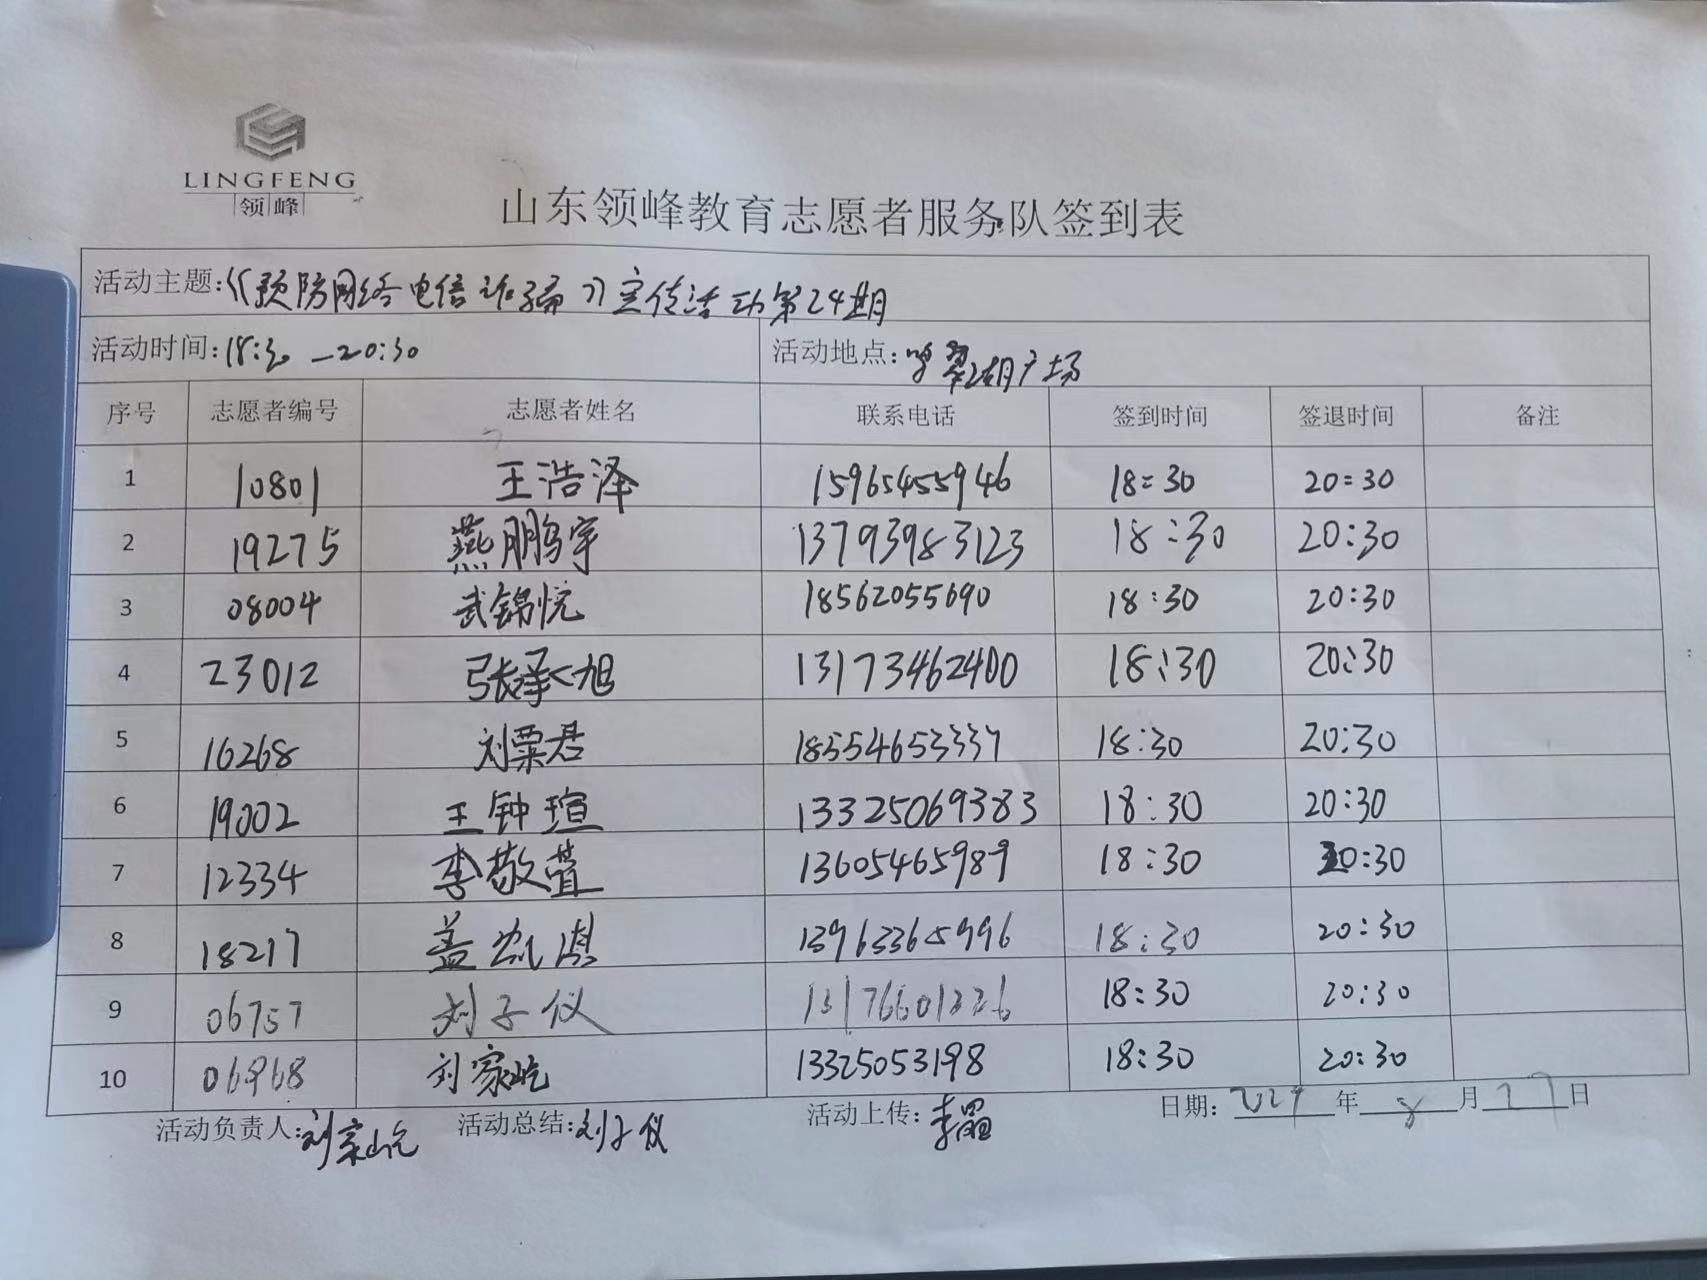 LINGFENG
领峰
山东领峰教育志愿者服务队签到表
活动主题:《预防网络电信诈骗》宣传活动第24期
活动时间:18:30—20:30 活动地点:翠湖广场
序号 志愿者编号 志愿者姓名 联系电话 签到时间 签退时间 备注
1 10801 王浩泽 15965455946 18:30 20:30
2 19275 燕鹏宇 13793983123 18:30 20:30
3 08004 武锦悦 18562055690 18:30 20:30
4 23012 张承旭 13173462400 18:30 20:30
5 16268 刘粟君 18554653337 18:30 20:30
6 19002 王钟瑄 13325069383 18:30 20:30
7 12334 李敬萱 13605465989 18:30 20:30
8 18217 盖凯淇 13963365996 18:30 20:30
9 06757 刘子仪 18:30 20:30
10 06968 刘家屹 13325053198 18:30 20:30
活动负责人:刘家屹 活动总结:刘子仪 活动上传:李 日期: 年 8 月 27 日